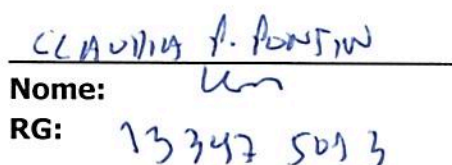 CLAUDIA P. PONTIN
Nome:
RG: 13347 5013